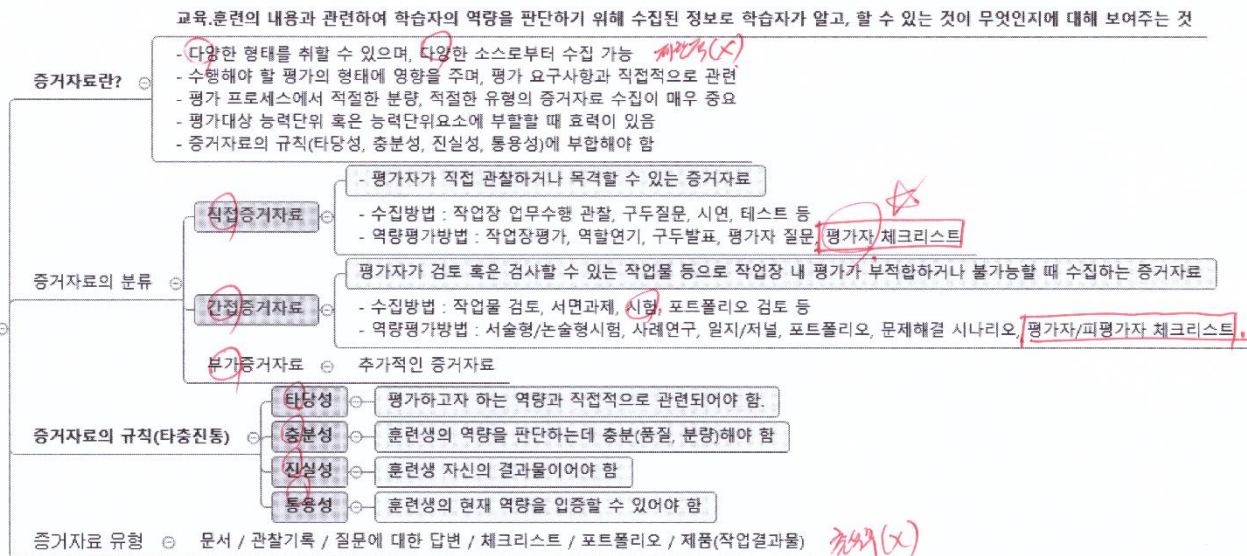 교육.훈련의 내용과 관련하여 학습자의 역량을 판단하기 위해 수집된 정보로 학습자가 알고, 할 수 있는 것이 무엇인지에 대해 보여주는 것
증거자료란?
- 다양한 형태를 취할 수 있으며, 다양한 소스로부터 수집 가능
(X)
- 수행해야 할 평가의 형태에 영향을 주며, 평가 요구사항과 직접적으로 관련
- 평가 프로세스에서 적절한 분량, 적절한 유형의 증거자료 수집이 매우 중요
- 평가대상 능력단위 혹은 능력단위요소에 부합할 때 효력이 있음
- 증거자료의 규칙(타당성, 충분성, 진실성, 통용성)에 부합해야 함
증거자료의 분류
직접증거자료
- 평가자가 직접 관찰하거나 목격할 수 있는 증거자료
- 수집방법 : 작업장 업무수행 관찰, 구두질문, 시연, 테스트 등
- 역량평가방법 : 작업장평가, 역할연기, 구두발표, 평가자 질문, 평가자 체크리스트
간접증거자료
평가자가 검토 혹은 검사할 수 있는 작업물 등으로 작업장 내 평가가 부적합하거나 불가능할 때 수집하는 증거자료
- 수집방법 : 작업물 검토, 서면과제, 시험, 포트폴리오 검토 등
- 역량평가방법 : 서술형/논술형시험, 사례연구, 일지/저널, 포트폴리오, 문제해결 시나리오, 평가자/피평가자 체크리스트
부가증거자료
추가적인 증거자료
증거자료의 규칙(타충진통)
타당성
평가하고자 하는 역량과 직접적으로 관련되어야 함.
충분성
훈련생의 역량을 판단하는데 충분(품질, 분량)해야 함
진실성
훈련생 자신의 결과물이어야 함
통용성
훈련생의 현재 역량을 입증할 수 있어야 함
증거자료 유형
문서 / 관찰기록 / 질문에 대한 답변 / 체크리스트 / 포트폴리오 / 제품(작업결과물)
(X)